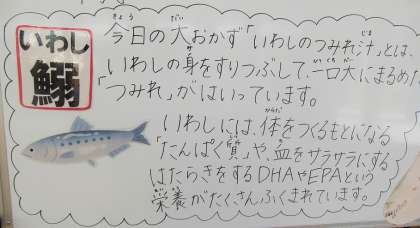 いわし
鰯
今日の大おかず「いわしのつみれ汁」とは、
いわしの身をすりつぶして、一口大にまるめた
「つみれ」がはいっています。
いわしには、体をつくるもとになる
「たんぱく質」や、血をサラサラにする
はたらきをするDHAやEPAという
栄養がたくさんふくまれています。